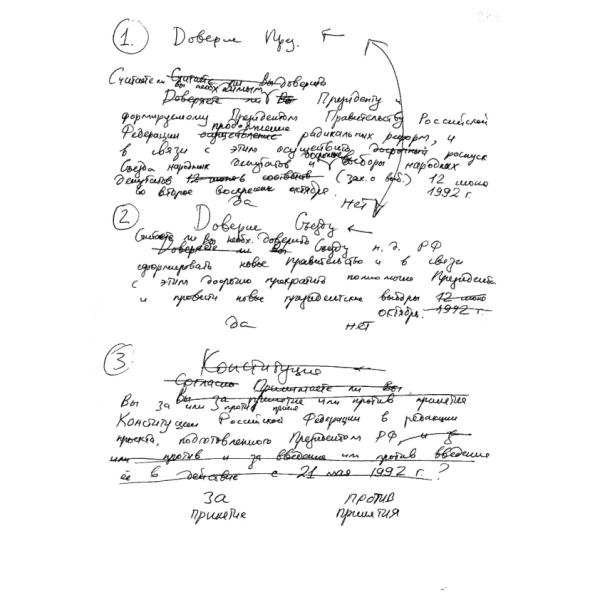 1. Доверие През.
Считаете ли Считаете ли вы доверить
вы необходимым
Доверяете ли Вы Президенту и
формируемому Президентом Правительству Российской
Федерации осуществление продолжение радикальных реформ, и
в связи с этим осуществить досрочный роспуск
Съезда народных депутатов и выборы народных
депутатов 12 июня (зак. о выб.) 12 июня
во второе воскресенье октября. 1992 г.
Да НЕТ
2 Доверие Съезду
Считаете ли Вы необх. доверить
Доверяете ли Вы Съезду н. д. РФ
сформировать новое правительство и в связи
с этим досрочно прекратить полномочия Президента
и провести новые президентские выборы 12 июня
октября. 1992 г.
Да НЕТ
3 Конституция
Согласны Принимаете ли Вы
Вы за принятие или против принятия
Вы за или против
Конституции Российской Федерации в редакции
проекта, подготовленного Президентом РФ, и з
или против и за введение или против введения
её в действие с 21 мая 1992 г.?
ЗА ПРОТИВ
принятие принятия